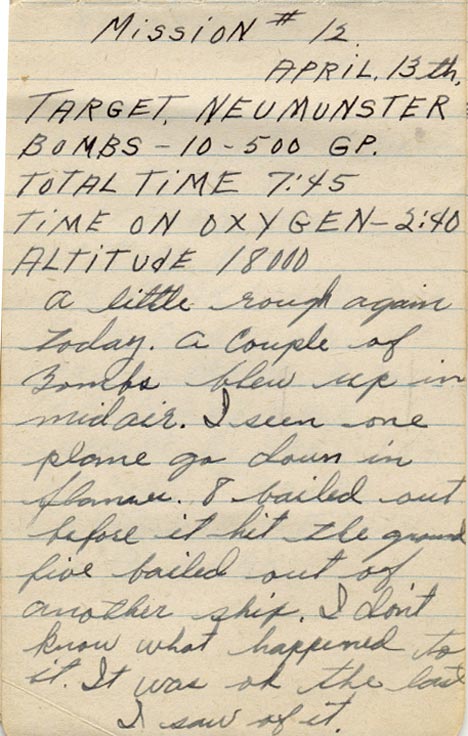 MiSSiON # 12
APRIL, 13th,
TARGET, NEUMUNSTER
BOMBS - 10 - 500 GP.
TOTAL TiME 7:45
TiME ON OXYGEN - 2:40
ALTiTUdE 18000
A little rough again
today. A couple of
Bombs blew up in
midair. I seen one
plane go down in
flames. 8 bailed out
before it hit the ground
five bailed out of
another ship. I don't
know what happened to
it. It was ok the last
I saw of it.